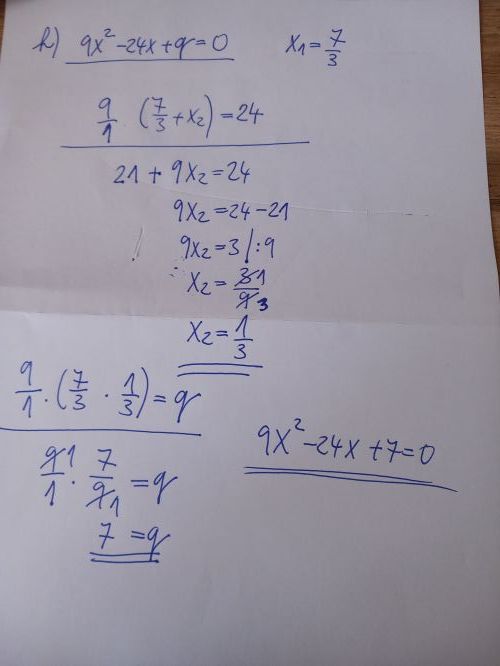 h) 9x² - 24x + q = 0     x₁ = 7/3
9/1 · (7/3 + x₂) = 24
21 + 9x₂ = 24
9x₂ = 24 - 21
9x₂ = 3 | : 9
x₂ = 3 1/9 3
x₂ = 1/3
9/1 · (7/3 · 1/3) = q
9 1/1 · 7/9 1 = q
7 = q
9x² - 24x + 7 = 0